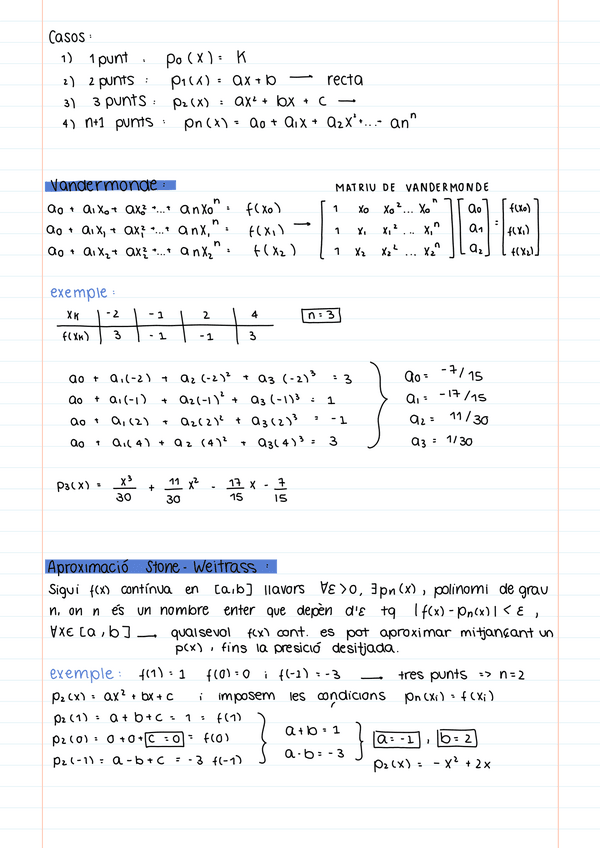 Casos:
1) 1 punt . p₀(x) = K
2) 2 punts : p₁(x) = ax+b → recta
3) 3 punts : p₂(x) = ax² + bx + c →
4) n+1 punts : pn(x) = a₀ + a₁x + a₂x²+...- anⁿ
Vandermonde:
a₀ + a₁x₀ + ax₀² +...+ anx₀ⁿ = f(x₀)
a₀ + a₁x₁ + ax₁² +...+ anx₁ⁿ = f(x₁) →
a₀ + a₁x₂ + ax₂² +...+ anx₂ⁿ = f(x₂)
MATRIU DE VANDERMONDE
1 x₀ x₀² ... x₀ⁿ a₀ f(x₀)
1 x₁ x₁² ... x₁ⁿ a₁ = f(x₁)
1 x₂ x₂² ... x₂ⁿ a₂ f(x₂)
exemple:
xk -2 -1 2 4 n=3
f(xk) 3 -1 -1 3
a₀ + a₁(-2) + a₂(-2)² + a₃(-2)³ = 3
a₀ + a₁(-1) + a₂(-1)² + a₃(-1)³ = 1
a₀ + a₁(2) + a₂(2)² + a₃(2)³ = -1
a₀ + a₁(4) + a₂(4)² + a₃(4)³ = 3
a₀ = -7/15
a₁ = -17/15
a₂ = 11/30
a₃ = 1/30
p₃(x) = x³/30 + 11/30 x² - 17/15 x - 7/15
Aproximació Stone-Weitrass:
Sigui f(x) contínua en [a,b] llavors ∀ε>0, ∃pn(x), polinomi de grau
n, on n és un nombre enter que depèn d'ε tq |f(x)-pn(x)| < ε,
∀x∈[a,b] → qualsevol f(x) cont. es pot aproximar mitjançant un
p(x), fins la presició desitjada.
exemple: f(1)=1 f(0)=0 i f(-1)=-3 → tres punts => n=2
p₂(x) = ax² + bx+c i imposem les condicions pn(xi) = f(xi)
p₂(1) = a+b+c = 1 = f(1)
p₂(0) = 0+0+c=0 = f(0)
p₂(-1) = a-b+c = -3 f(-1)
a+b = 1
a-b = -3
a=-1, b=2
p₂(x) = -x² + 2x